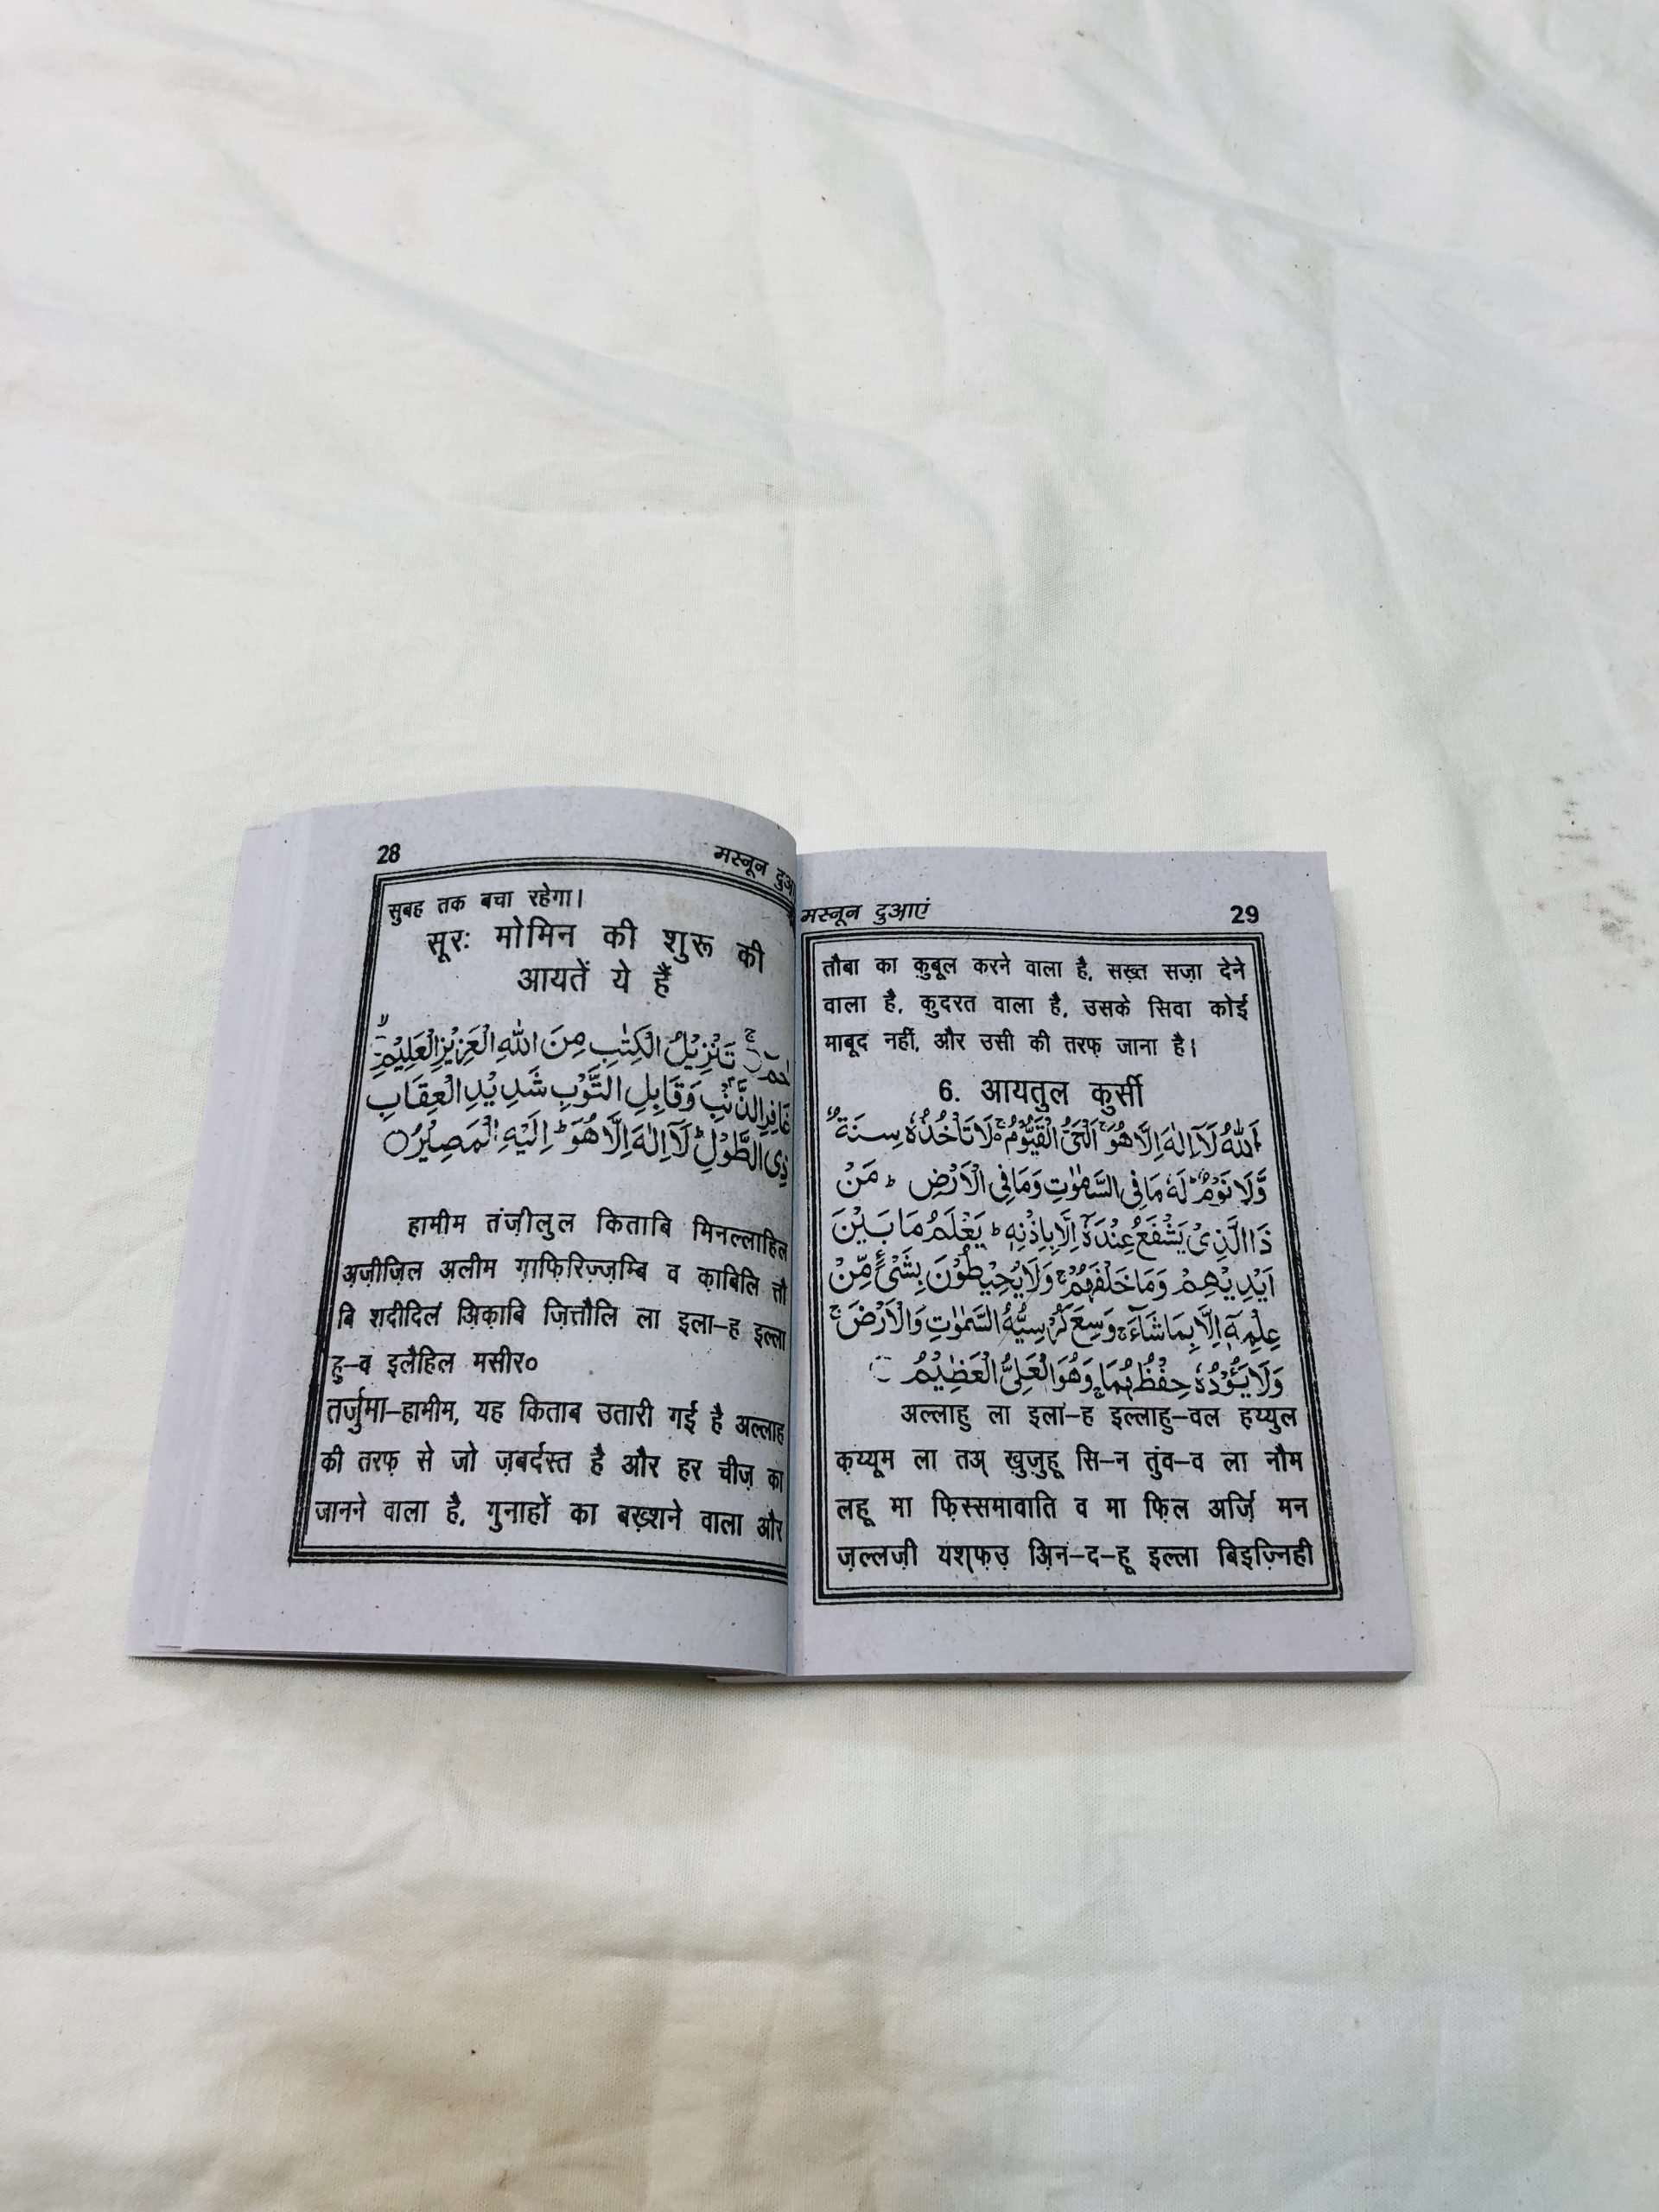 28
मस्नून दुआ
सुबह तक बचा रहेगा।
सूरः मोमिन की शुरू की
आयतें ये हैं
حٰمٓ ۚ تَنْزِيْلُ الْكِتٰبِ مِنَ اللّٰهِ الْعَزِيْزِ الْعَلِيْمِ ۙ
غَافِرِ الذَّنْۢبِ وَقَابِلِ التَّوْبِ شَدِيْدِ الْعِقَابِ
ذِى الطَّوْلِ ؕ لَاۤ اِلٰهَ اِلَّا هُوَ ؕ اِلَيْهِ الْمَصِيْرُ ○
हामीम तंज़ीलुल किताबि मिनल्लाहिल
अ़ज़ीज़िल अ़लीम ग़ाफ़िरिज़्ज़म्बि व क़ाबिलि त्तौ
बि शदीदिल अ़िक़ाबि ज़ित्तौलि ला इला-ह इल्ला
हु-व इलैहिल मसीर०
तर्जुमा-हामीम, यह किताब उतारी गई है अल्लाह
की तरफ़ से जो ज़बर्दस्त है और हर चीज़ का
जानने वाला है, गुनाहों का बख़्शने वाला और
मस्नून दुआ़एं
29
तौबा का क़ुबूल करने वाला है, सख़्त सज़ा देने
वाला है, क़ुदरत वाला है, उसके सिवा कोई
माबूद नहीं, और उसी की तरफ़ जाना है।
6. आयतुल कुर्सी
اَللّٰهُ لَاۤ اِلٰهَ اِلَّا هُوَ ۚ اَلْحَىُّ الْقَيُّوْمُ ۚ لَا تَاْخُذُهٗ سِنَةٌ
وَّلَا نَوْمٌ ؕ لَهٗ مَا فِى السَّمٰوٰتِ وَمَا فِى الْاَرْضِ ؕ مَنْ
ذَا الَّذِىْ يَشْفَعُ عِنْدَهٗۤ اِلَّا بِاِذْنِهٖ ؕ يَعْلَمُ مَا بَيْنَ
اَيْدِيْهِمْ وَمَا خَلْفَهُمْ ۚ وَلَا يُحِيْطُوْنَ بِشَىْءٍ مِّنْ
عِلْمِهٖۤ اِلَّا بِمَا شَآءَ ۚ وَسِعَ كُرْسِيُّهُ السَّمٰوٰتِ وَالْاَرْضَ ۚ
وَلَا يَـُٔوْدُهٗ حِفْظُهُمَا ۚ وَهُوَ الْعَلِىُّ الْعَظِيْمُ
अल्लाहु ला इला-ह इल्लाहु-वल हय्युल
क़य्यूम ला तअ् ख़ुज़ुहू सि-न तुंव-व ला नौम
लहू मा फ़िस्समावाति व मा फ़िल अर्ज़ि मन
ज़ल्लज़ी यश्फ़उ़ अ़िन-द-हू इल्ला बिइज़्निही